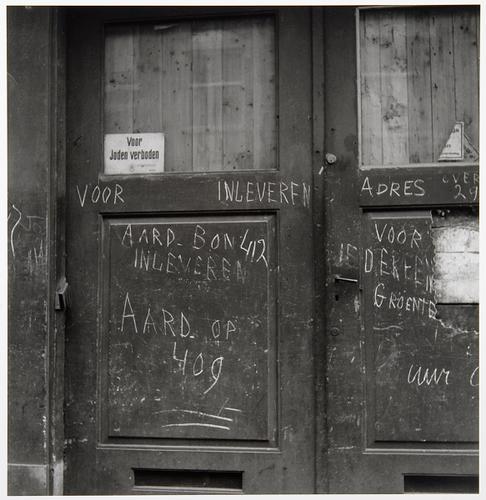 Voor
Joden verboden
VOOR INLEVEREN
AARD-BON 412
INLEVEREN
AARD. OP
409
ADRES OVER
29
VOOR
IEDEREEN
GROENTE
uur